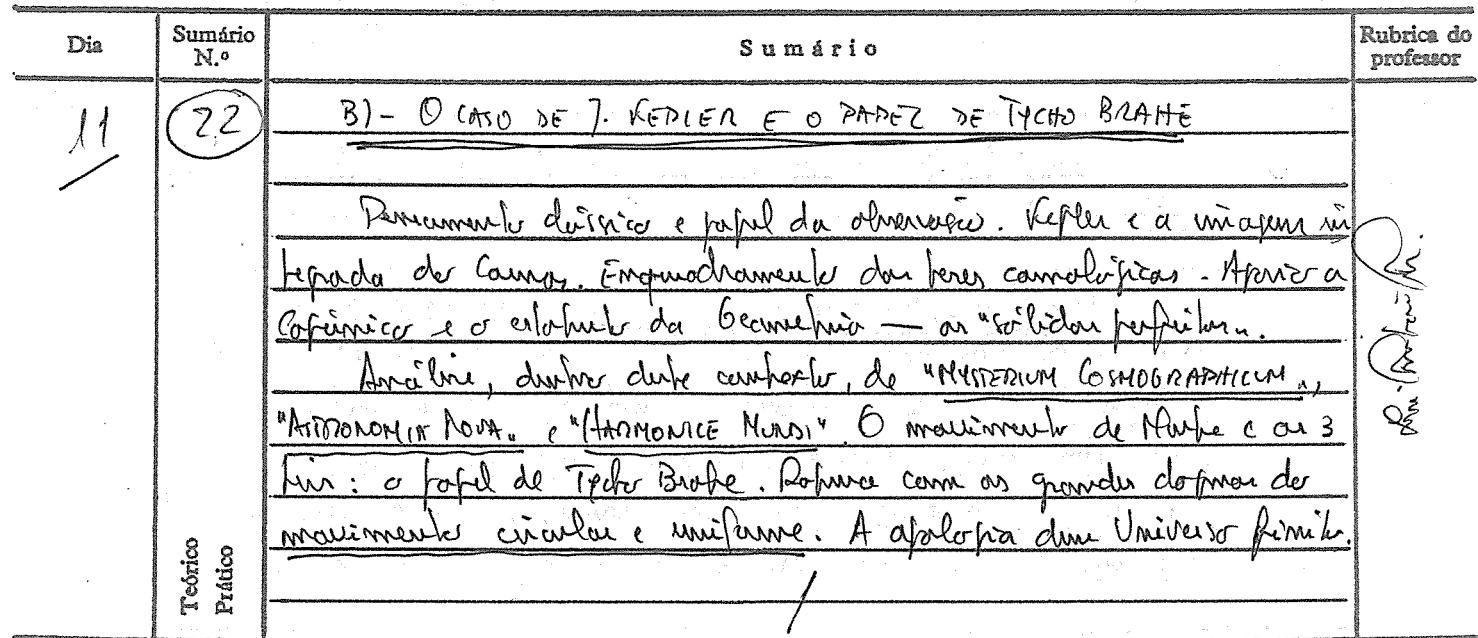 Dia
Sumário N.º
Sumário
Rubrica do professor
11
22
B) - O CASO DE J. KEPLER E O PAPEL DE TYCHO BRAHE
Pensamento clássico e papel da observação. Kepler e a imagem in
tegrada do Cosmos. Enquadramento das teses cosmológicas. Apoio a
Copérnico e o estatuto da Geometria — os "sólidos perfeitos".
Análise, dentro deste contexto, de "MYSTERIUM COSMOGRAPHICUM",
"ASTRONOMIA NOVA" e "HARMONICE MUNDI". O movimento de Marte e as 3
leis: o papel de Tycho Brahe. Rotura com os grandes dogmas do
movimento circular e uniforme. A apologia dum Universo finito.
Teórico
Prático